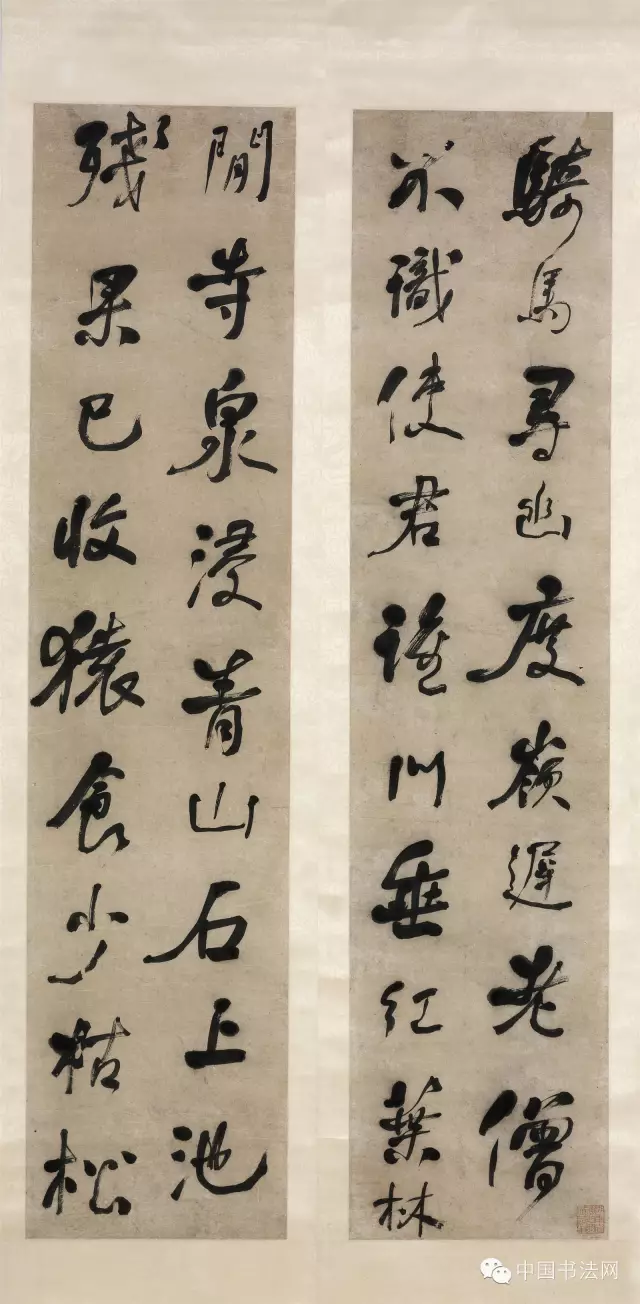 騎馬尋幽度嶺遲老僧
不識使君誰門垂紅葉林
間寺泉浸青山石上池
殘果已收猿食少枯松
中国书法网